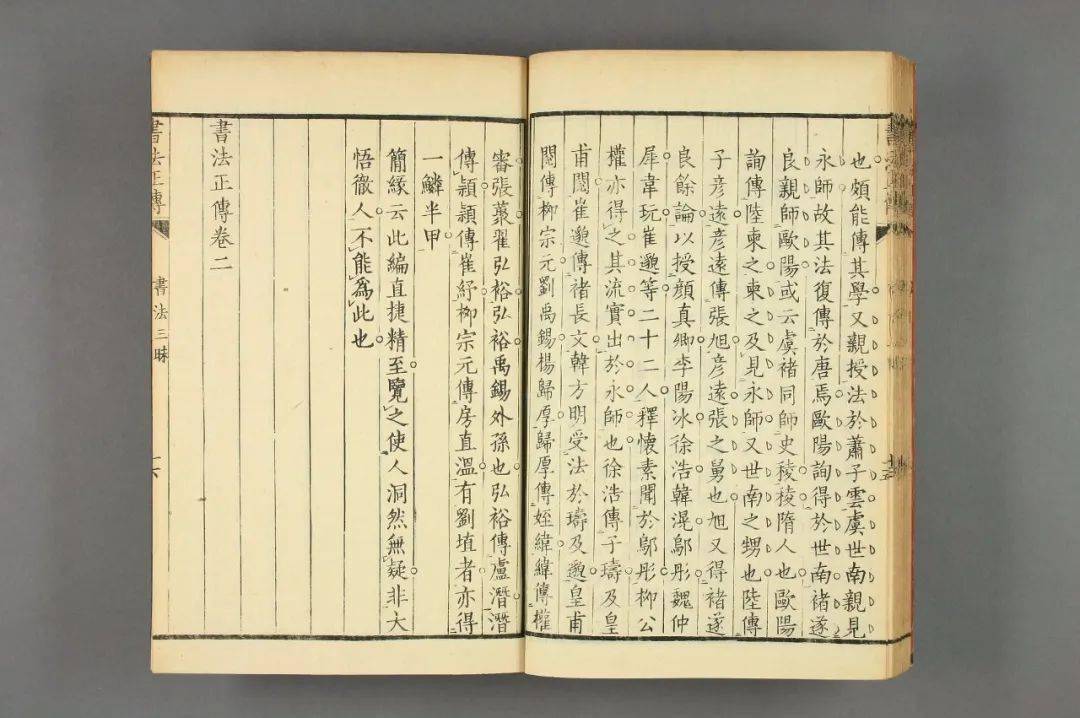 也頗能傳其學又親授法於蕭子雲虞世南親見
永師故其法復傳於唐焉歐陽詢得於世南褚遂
良親師歐陽或云虞褚同師史陵陵隋人也歐陽
詢傳陸柬之柬之及見永師又世南之甥也陸傳
子彦遠彦遠傳張旭彦遠張之舅也旭又得褚遂
良餘論以授顏真卿李陽冰徐浩韓滉鄔彤魏仲
犀韋玩崔邈等二十二人釋懷素聞於鄔彤柳公
權亦得之其流實出於永師也徐浩傳子璹及皇
甫閱崔邈傳褚長文韓方明受法於璹及邈皇甫
閱傳柳宗元劉禹錫楊歸厚歸厚傳姪緯緯傳權
審張叢翟弘裕弘裕禹錫外孫也弘裕傳盧潛潛
傳頴頴傳崔紓柳宗元傳房直溫有劉埴者亦得
一鱗半甲
簡緣云此編直捷精至覽之使人洞然無疑非大
悟徹人不能為此也
書法正傳卷二
書法正傳
書法三昧